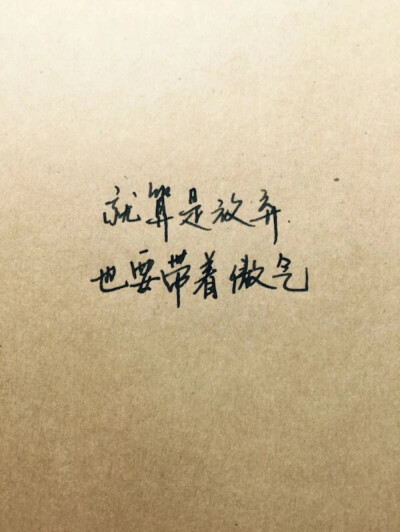 就算是放弃
也要带着傲气